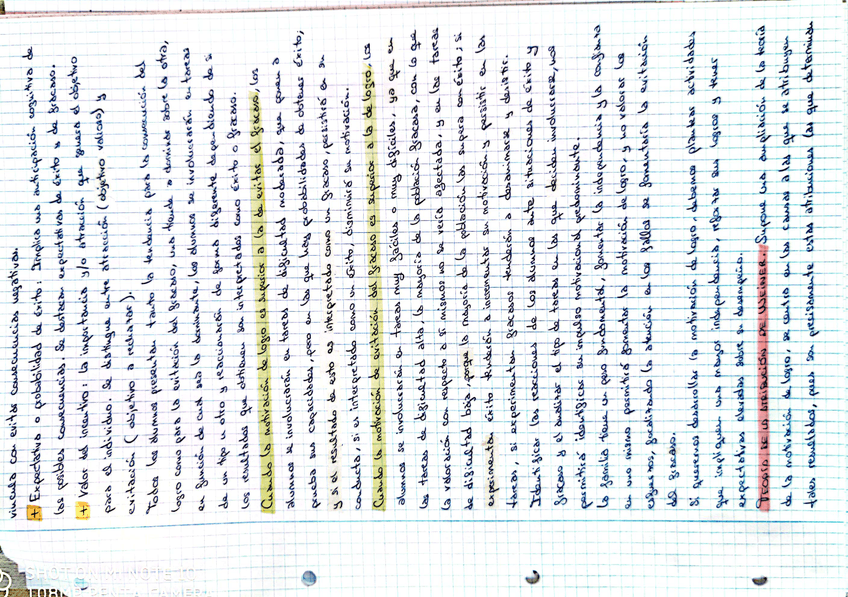 vincula con evitar consecuencias negativas.
+ Expectativa o probabilidad de éxito: Implica una anticipación cognitiva de
las posibles consecuencias. Se destacan expectativas de éxito o de fracaso.
+ Valor del incentivo: la importancia y/o atracción que genera el objetivo
para el individuo. Se distingue entre atracción (objetivo valioso) y
evitación (objetivo a rechazar).
Todos los alumnos presentan tanto la tendencia para la consecución del
logro como para la evitación del fracaso, una tiende a dominar sobre la otra,
en función de cual sea la dominante, los alumnos se involucrarán en tareas
de un tipo u otro y reaccionarán de forma diferente dependiendo de si
los resultados que obtienen son interpretados como éxito o fracaso.
Cuando la motivación de logro es superior a la de evitar el fracaso, los
alumnos se involucrarán en tareas de dificultad moderada, que ponen a
prueba sus capacidades, pero en las que hay probabilidades de obtener éxito,
y si el resultado de esto es interpretado como un fracaso, persistirá en su
conducta, si es interpretado como un éxito, disminuirá su motivación.
Cuando la motivación de evitación del fracaso es superior a la de logro, los
alumnos se involucrarán en tareas muy fáciles o muy difíciles, ya que en
las tareas de dificultad alta, la mayoría de la población fracasa, con lo que
la valoración con respecto a sí mismos no se vería afectada, y en las tareas
de dificultad baja, porque la mayoría de la población las supera con éxito; si
experimentan éxito tenderán a incrementar su motivación y persistir en las
tareas, si experimentan fracasos tenderán a desanimarse y desistir.
Identificar las reacciones de los alumnos ante situaciones de éxito y
fracaso y el analizar el tipo de tareas en las que deciden involucrarse, nos
permitirá identificar su impulso motivacional predominante.
La familia tiene un peso fundamental, fomentar la independencia y la confianza
en uno mismo permitirá fomentar la motivación de logro, y no valorar los
esfuerzos, focalizando la atención en los fallos se fomentaría la evitación
del fracaso.
Si queremos desarrollar la motivación de logro debemos plantear actividades
que impliquen una mayor independencia, reforzar sus logros y tener
expectativas elevadas sobre su desempeño.
TEORÍA DE LA ATRIBUCIÓN DE WEINER. Supone una ampliación de la teoría
de la motivación de logro, se centra en las causas a las que se atribuyen
tales resultados, pues son precisamente estas atribuciones las que determinan
SHOT ON MI NOTE 10